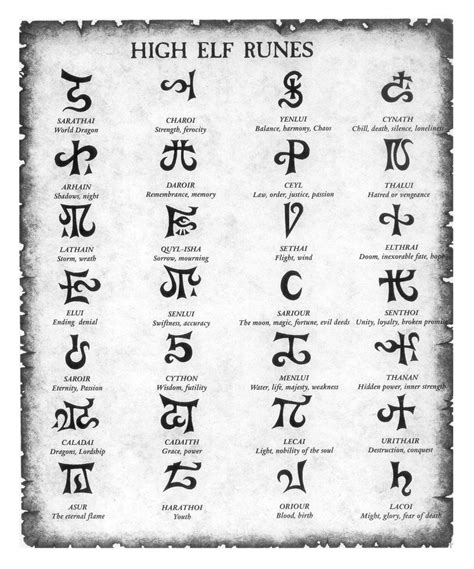 HIGH ELF RUNES
SARATHAI CHAROI YENLUI CYNATH
World Dragon Strength, ferocity Balance, harmony, Chaos Chill, death, silence, loneliness
ARHAIN DAROIR CEYL THALUI
Shadows, night Remembrance, memory Law, order, justice, passion Hatred or vengeance
LATHAIN QUYL-ISHA SETHAI ELTHRAI
Storm, wrath Sorrow, mourning Flight, wind Doom, inexorable fate, hope
ELUI SENLUI SARIOUR SENTHOI
Ending denial Swiftness, accuracy The moon, magic, fortune, evil deeds Unity, loyalty, broken promise
SAROIR CYTHON MENLUI THANAN
Eternity, Passion Wisdom, futility Water, life, majesty, weakness Hidden power, inner strength
CALADAI CADAITH LECAI URITHAIR
Dragons, Lordship Grace, power Light, nobility of the soul Destruction, conquest
ASUR HARATHOI ORIOUR LACOI
The eternal flame Youth Blood, birth Might, glory, fear of death